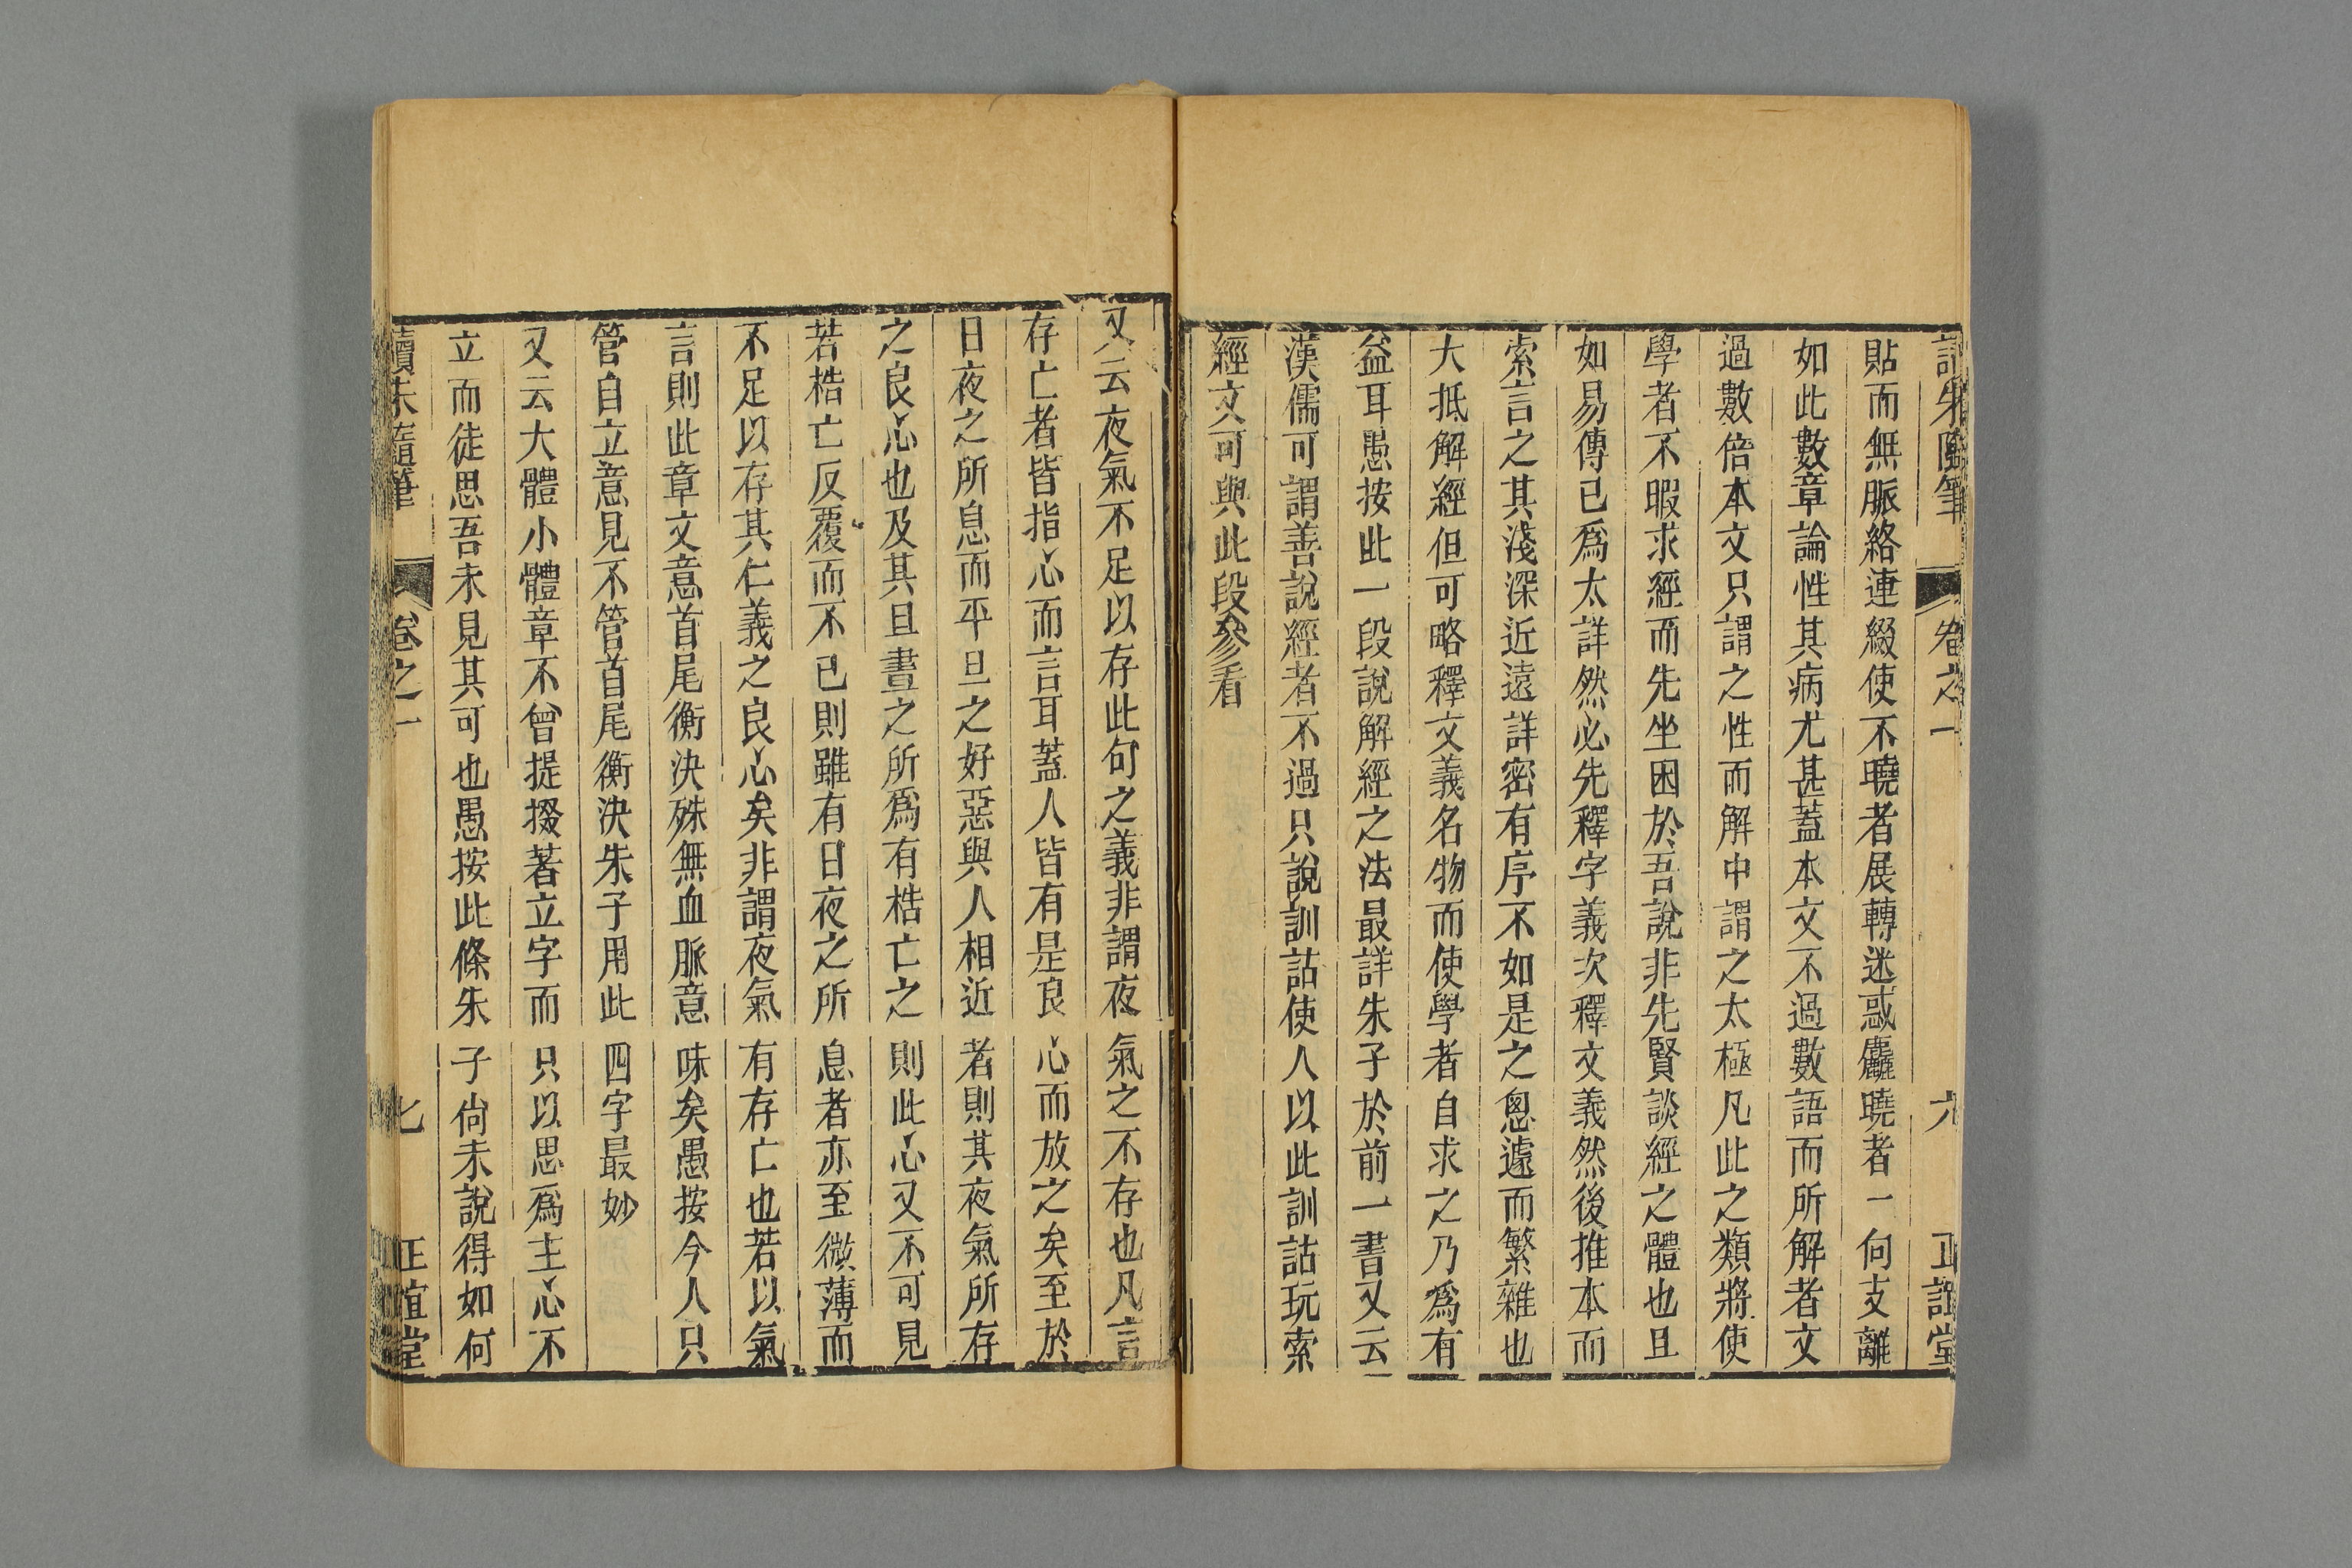 讀朱隨筆 卷之一 六 正誼堂
貼而無脈絡連綴使不曉者展轉迷惑麤曉者一向支離
如此數章論性其病尤甚蓋本文不過數語而所解者文
過數倍本文只謂之性而解中謂之太極凡此之類將使
學者不暇求經而先坐困於吾說非先賢談經之體也且
如易傳已爲太詳然必先釋字義次釋文義然後推本而
索言之其淺深近遠詳密有序不如是之悤遽而繁雜也
大抵解經但可略釋文義名物而使學者自求之乃爲有
益耳愚按此一段說解經之法最詳朱子於前一書又云
漢儒可謂善說經者不過只說訓詁使人以此訓詁玩索
經文可與此段參看
又云夜氣不足以存此句之義非謂夜氣之不存也凡言
存亡者皆指心而言耳蓋人皆有是良心而放之矣至於
日夜之所息而平旦之好惡與人相近者則其夜氣所存
之良心也及其旦晝之所爲有梏亡之則此心又不可見
若梏亡反覆而不已則雖有日夜之所息者亦至微薄而
不足以存其仁義之良心矣非謂夜氣有存亡也若以氣
言則此章文意首尾衡決殊無血脈意味矣愚按今人只
管自立意見不管首尾衡決朱子用此四字最妙
又云大體小體章不曾提掇著立字而只以思爲主心不
立而徒思吾未見其可也愚按此條朱子尙未說得如何
讀朱隨筆 卷之一 七 正誼堂